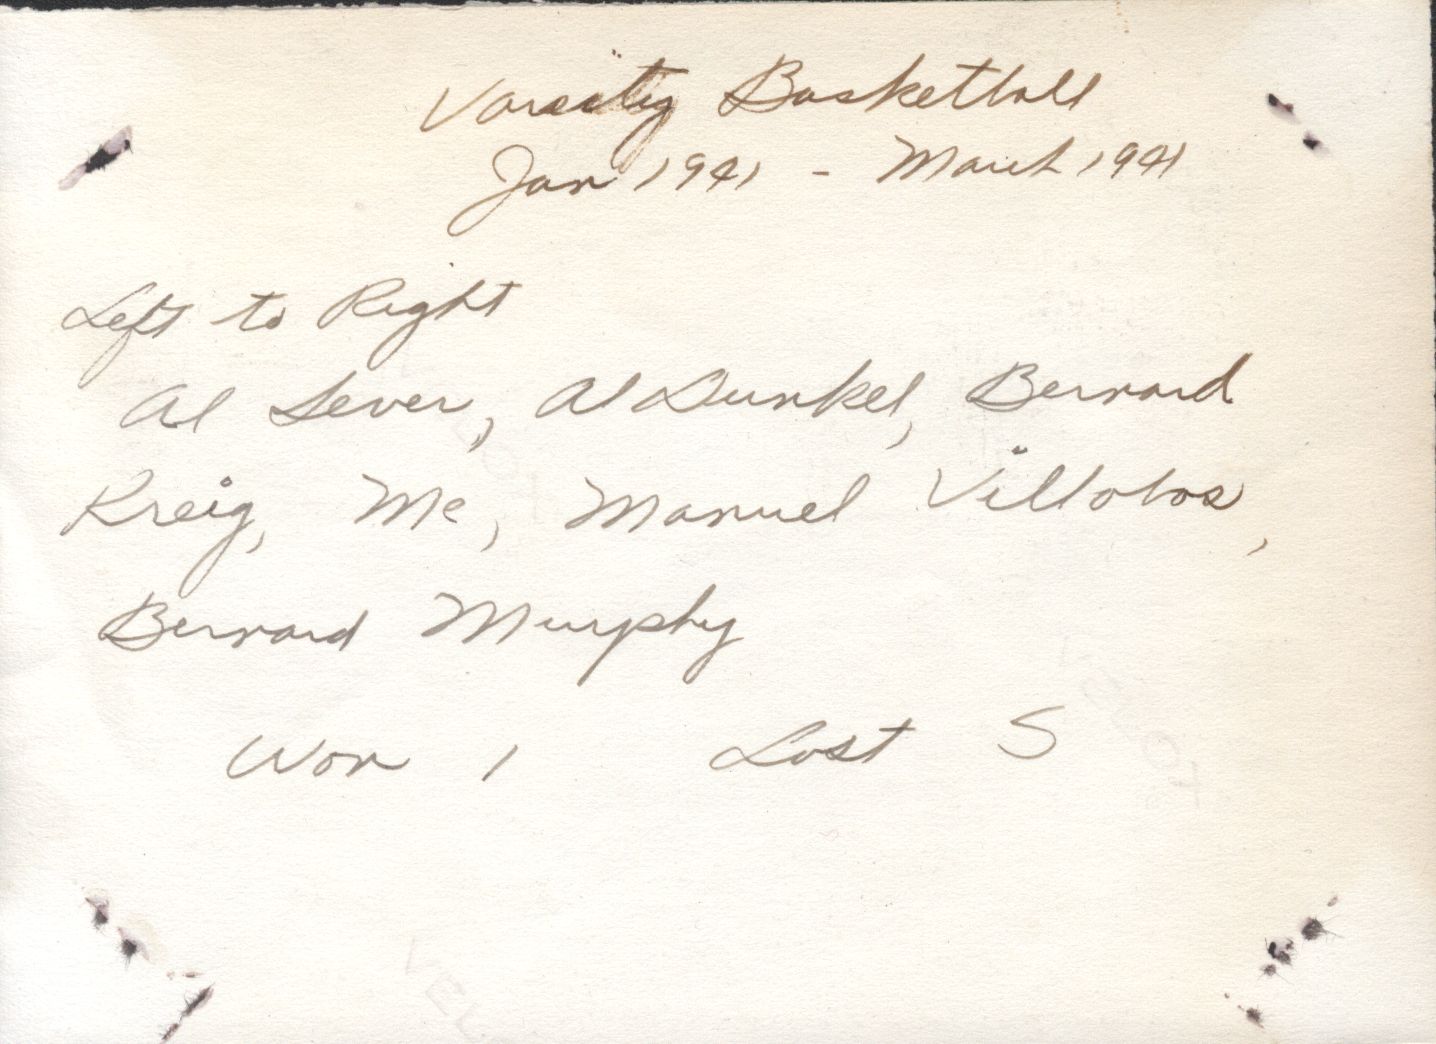 Varsity Basketball
Jan 1941 - March 1941
Left to Right
Al Sever, Al Dunkel, Bernard
Kreig, Me, Manuel Villalobos,
Bernard Murphy
Won 1 Lost 5